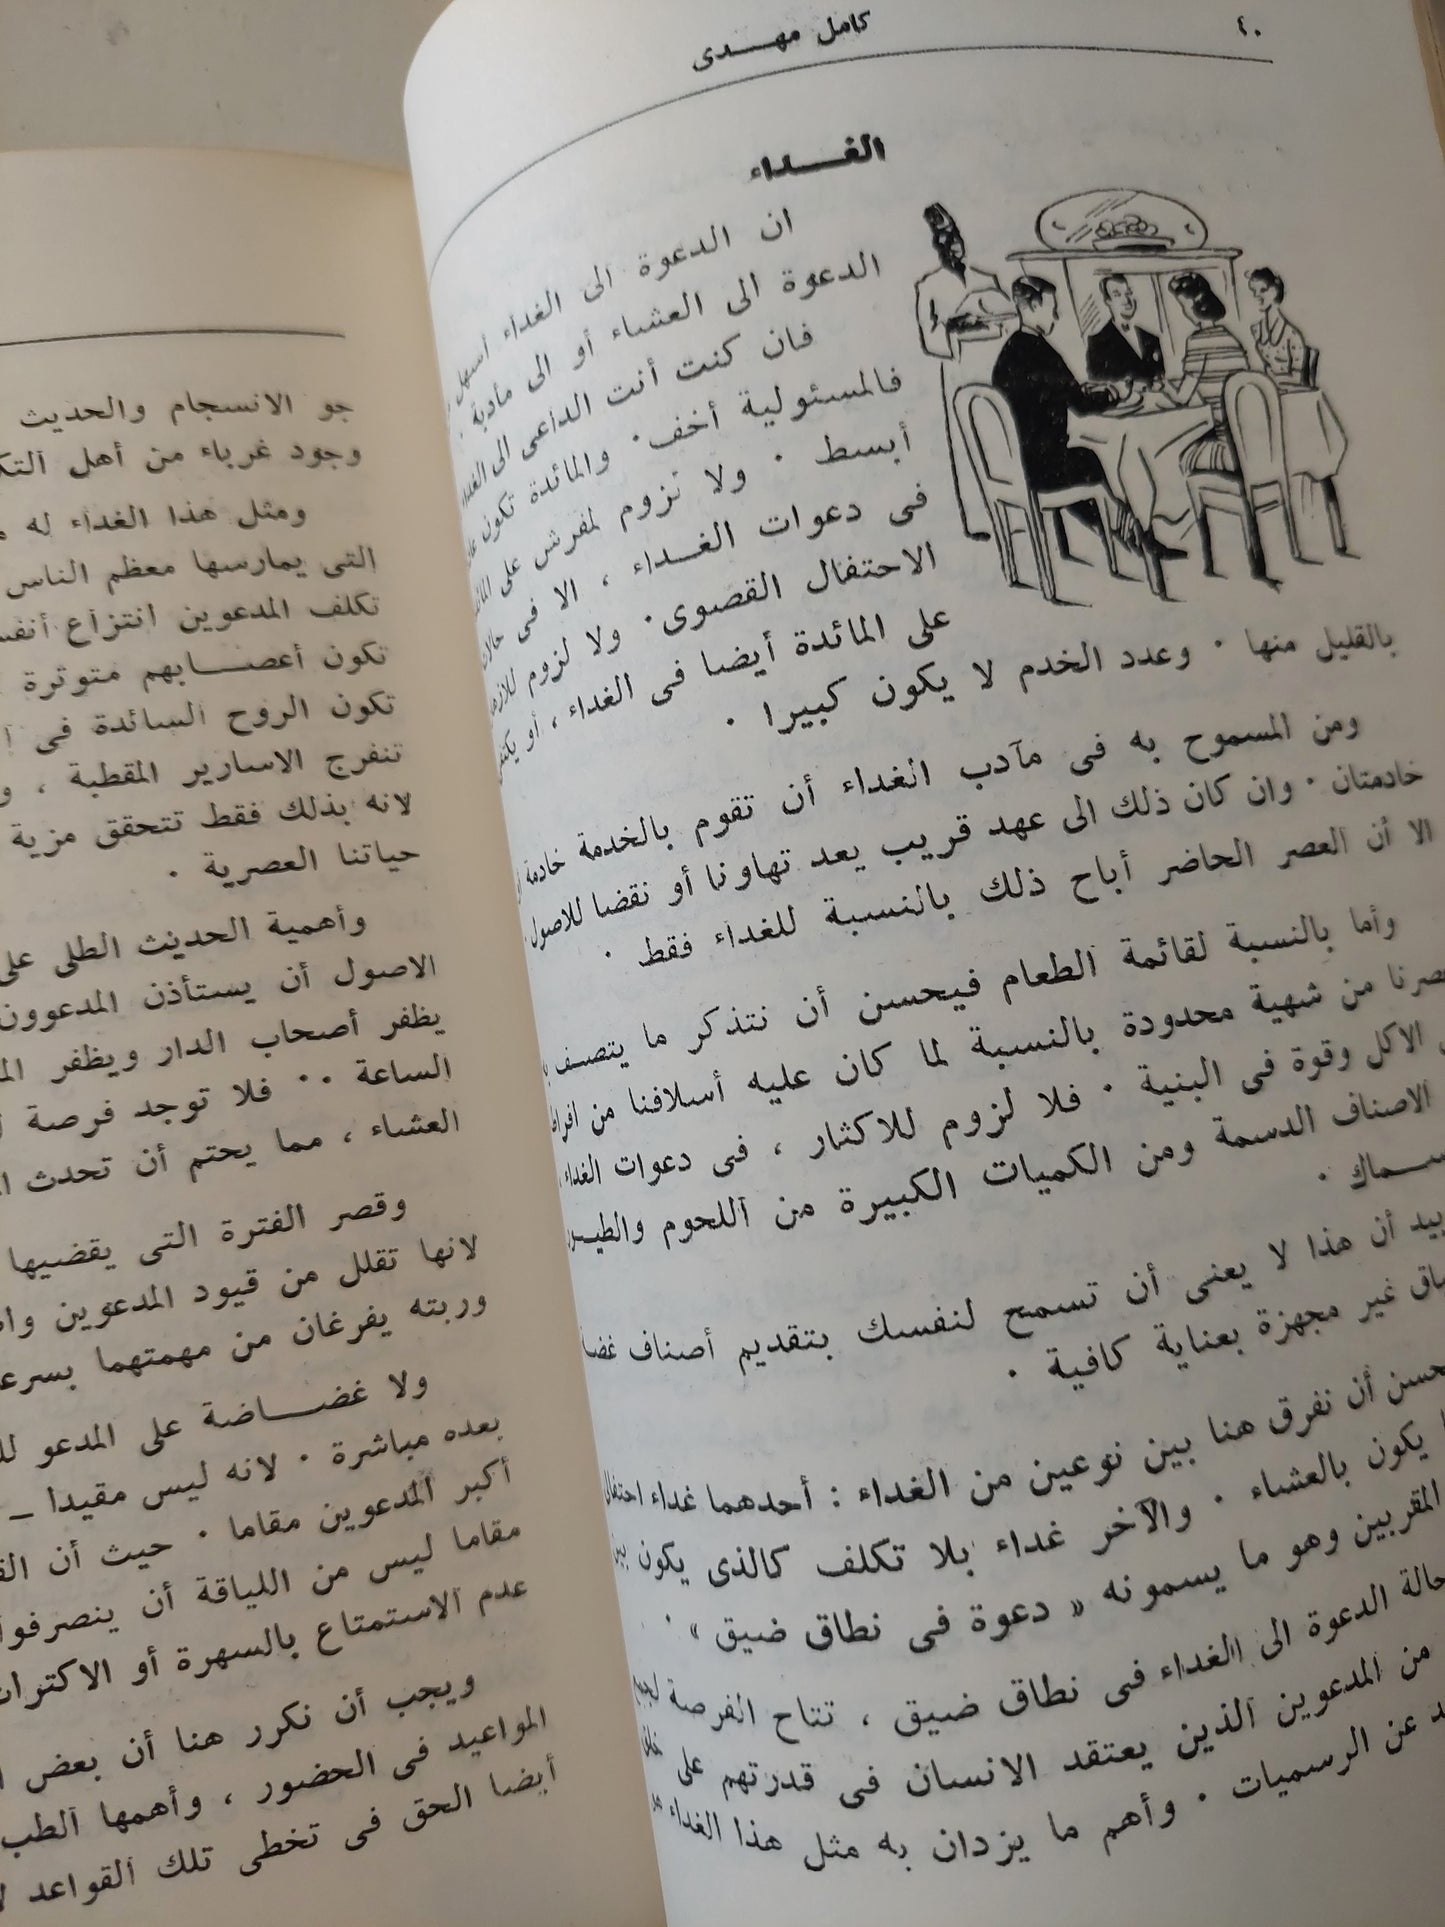 ٤٠
كامل مهـــدى
الغـــداء
ان الدعوة الى الغداء أسهل
الدعوة الى العشاء أو الى مأدبة .
فان كنت أنت الداعى الى الغداء
فالمسئولية أخف . والمائدة تكون
أبسط . ولا لزوم لمفرش على
فى دعوات الغـــداء ، الا فى حالات
الاحتفال القصوى . ولا لزوم
على المائدة أيضا فى الغداء ، أو
بالقليل منها . وعدد الخدم لا يكون كبيرا .
ومن المسموح به فى مآدب الغداء أن تقوم بالخدمة خادمة
خادمتان . وان كان ذلك الى عهد قريب يعد تهاونا أو نقضا للاصول
الا أن العصر الحاضر أباح ذلك بالنسبة للغداء فقط .
وأما بالنسبة لقائمة الطعام فيحسن أن نتذكر ما يتصف
من شهية محدودة بالنسبة لما كان عليه أسلافنا من
الاكل وقوة فى البنية . فلا لزوم للاكثار ، فى دعوات الغداء
الاصناف الدسمة ومن الكميات الكبيرة من اللحوم
أن هذا لا يعنى أن تسمح لنفسك بتقديم أصناف
غير مجهزة بعناية كافية .
أن نفرق هنا بين نوعين من الغداء : أحدهما غداء
يكون بالعشاء . والآخر غداء بلا تكلف كالذى يكون
المقربين وهو ما يسمونه « دعوة فى نطاق ضيق » .
حالة الدعوة الى الغداء فى نطاق ضيق ، تتاح الفرصة
من المدعوين الذين يعتقد الانسان فى قدرتهم على
عن الرسميات . وأهم ما يزدان به مثل هذا الغداء
جو الانسجام والحديث
وجود غرباء من أهل
ومثل هذا الغداء له
التى يمارسها معظم الناس
تكلف المدعوين انتزاع
تكون أعصـــابهم متوترة
تكون الروح السائدة فى
تنفرج الاسارير المقطبة ،
لانه بذلك فقط تتحقق مزية
حياتنا العصرية .
وأهمية الحديث الطلى على
الاصول أن يستأذن المدعوون
يظفر أصحاب الدار ويظفر
الساعة . . فلا توجد فرصة
العشاء ، مما يحتم أن تحدث
وقصر الفترة التى يقضيها
لانها تقلل من قيود المدعوين
وربته يفرغان من مهمتهما
ولا غضـــاضة على المدعو
بعده مباشرة . لانه ليس مقيدا –
أكبر المدعوين مقاما . حيث أن
مقاما ليس من اللياقة أن ينصرفوا
عدم الاستمتاع بالسهرة أو
ويجب أن نكرر هنا أن بعض
المواعيد فى الحضور ، وأهمها
أيضا الحق فى تخطى تلك القواعد